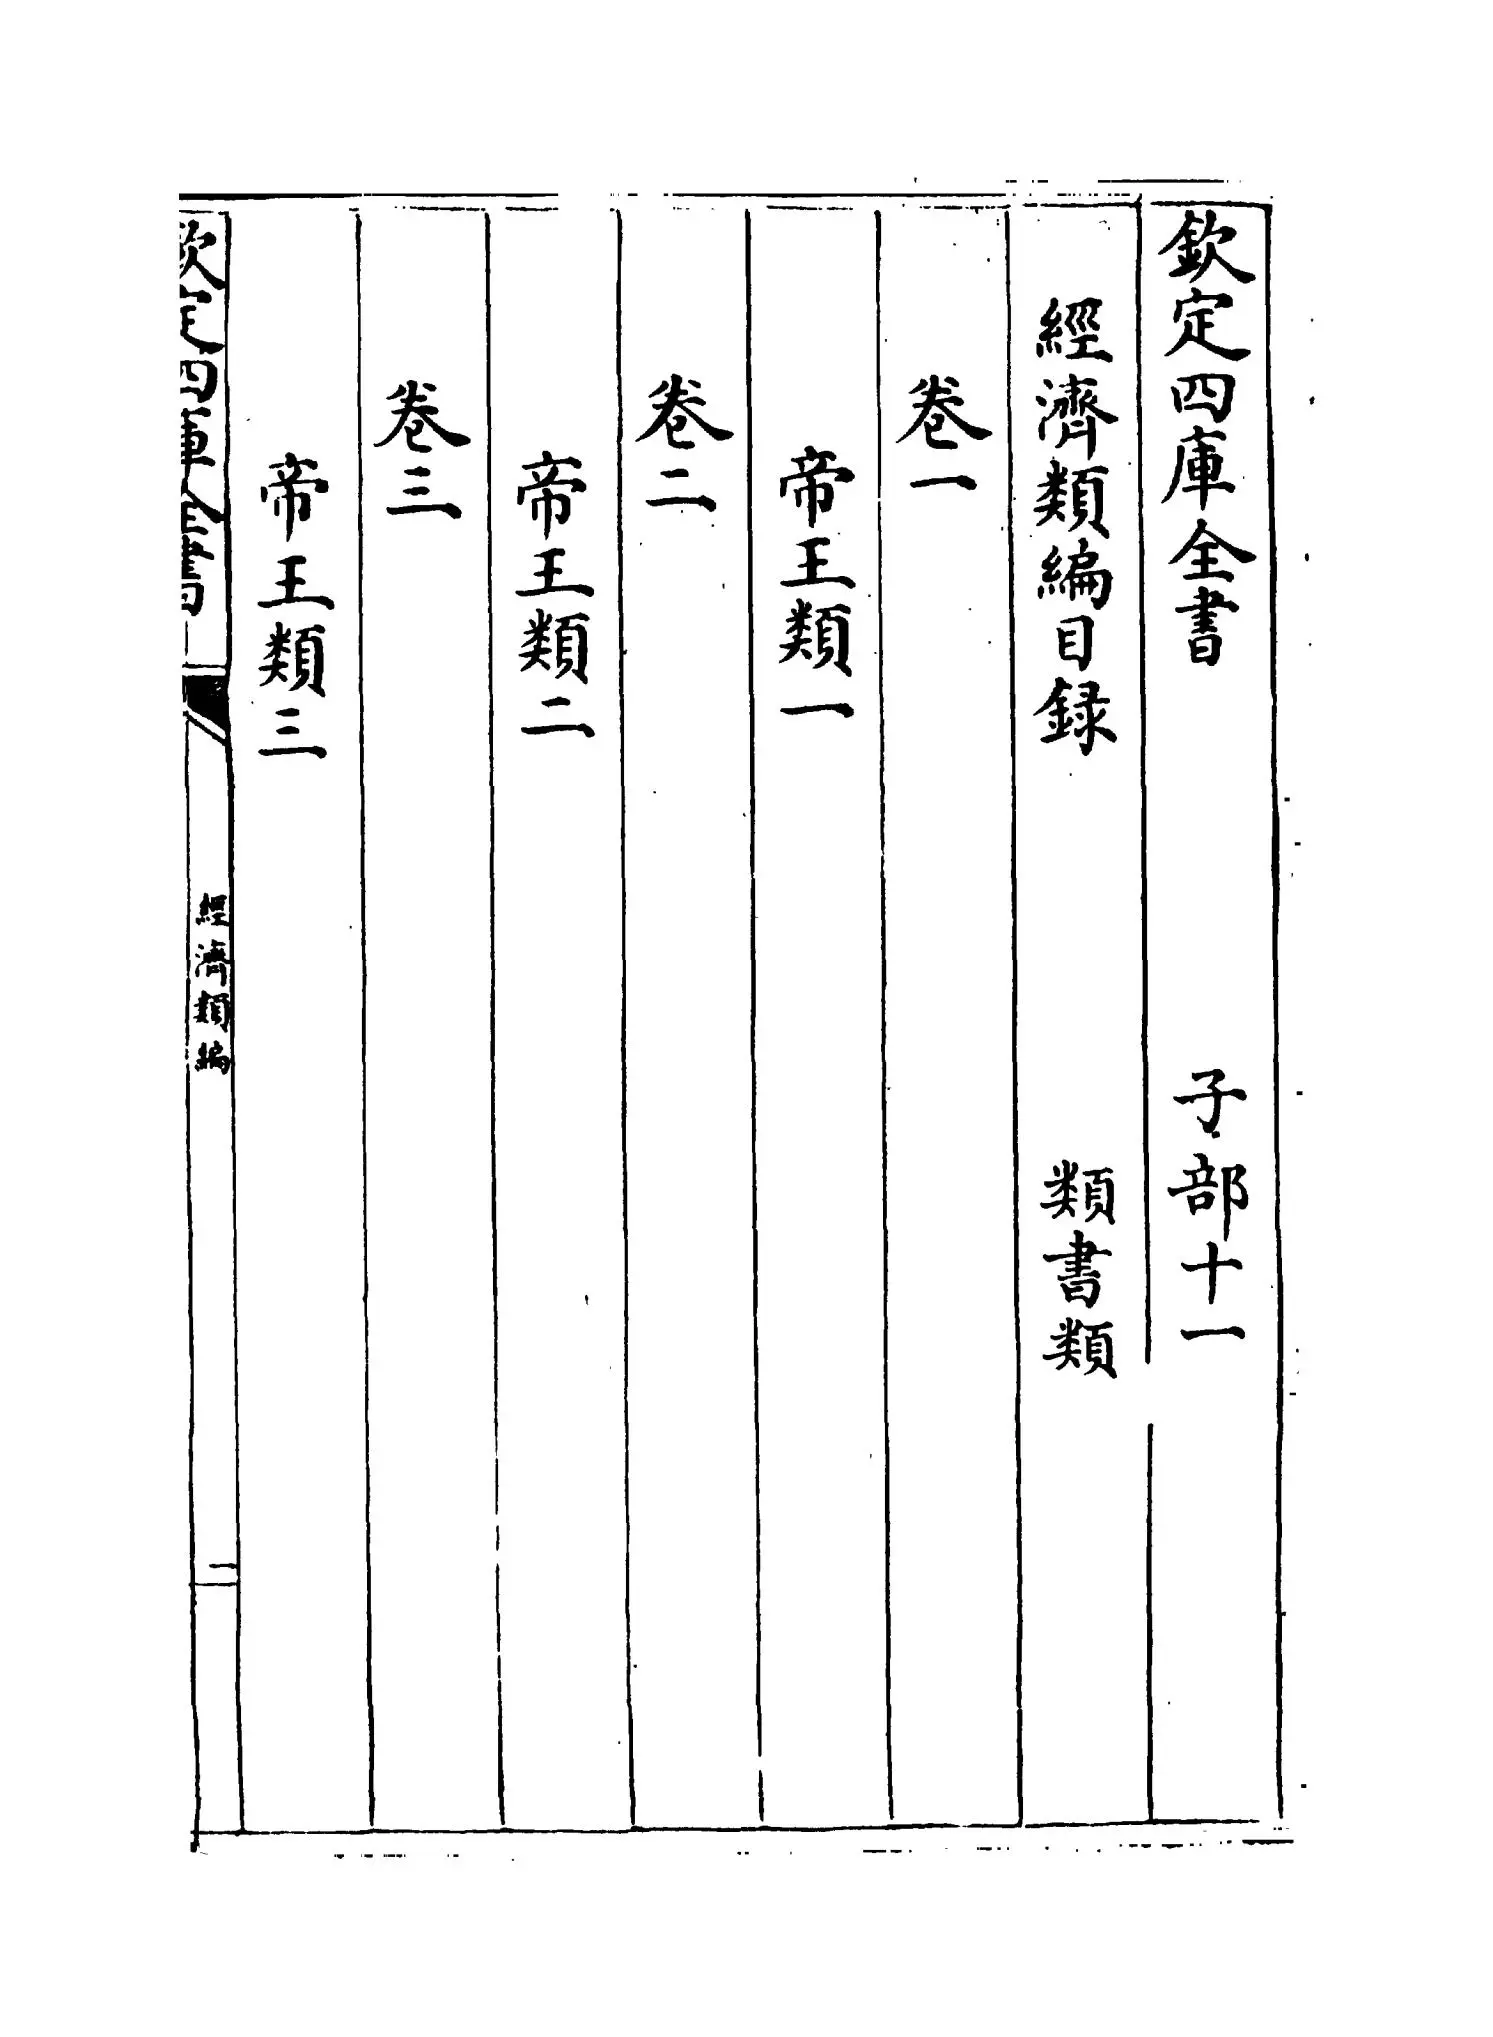 欽定四庫全書 子部十一
經濟類編目録 類書類
卷一
帝王類一
卷二
帝王類二
卷三
帝王類三
欽定四庫全書 經濟類編 一